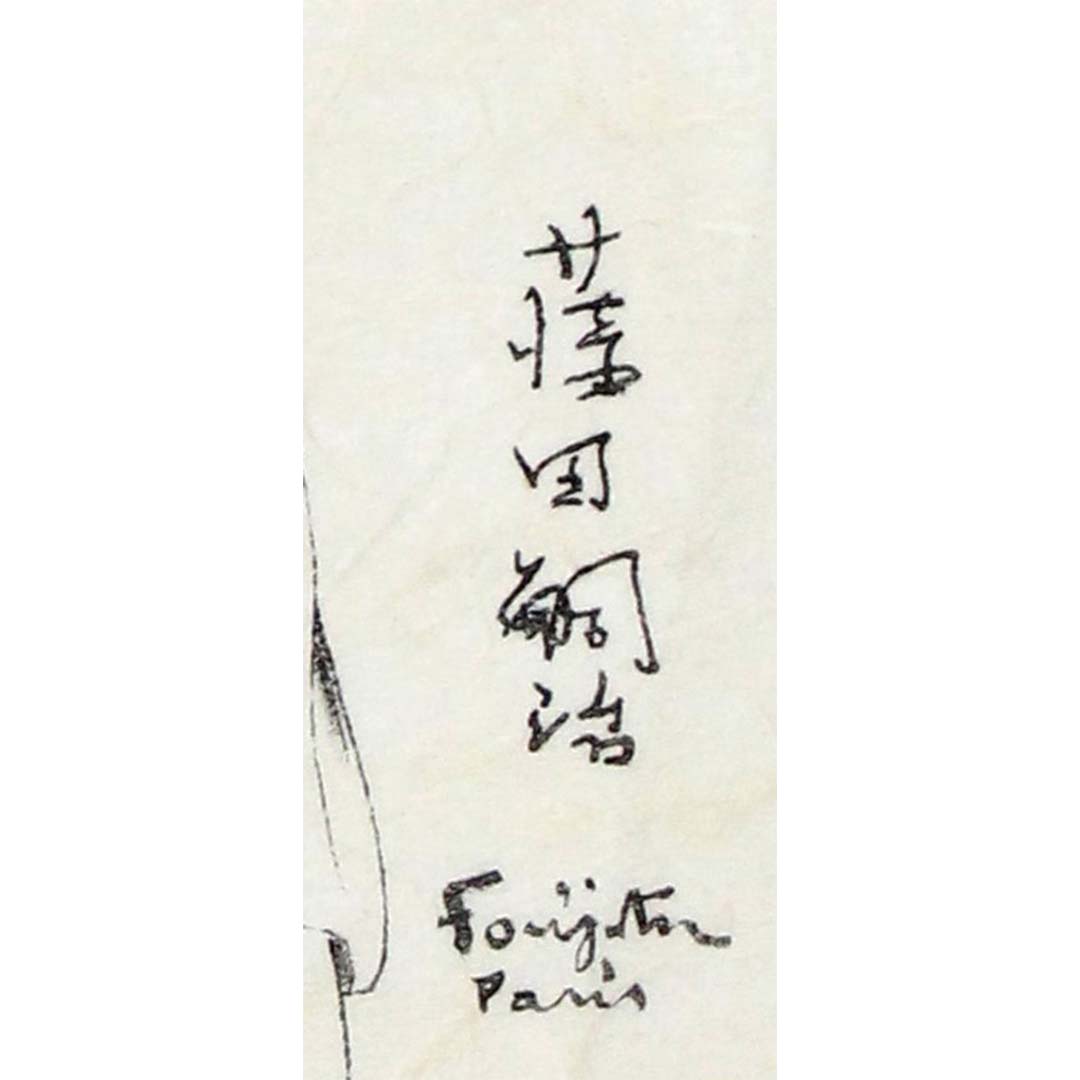 藤田嗣治
Foujita
Paris